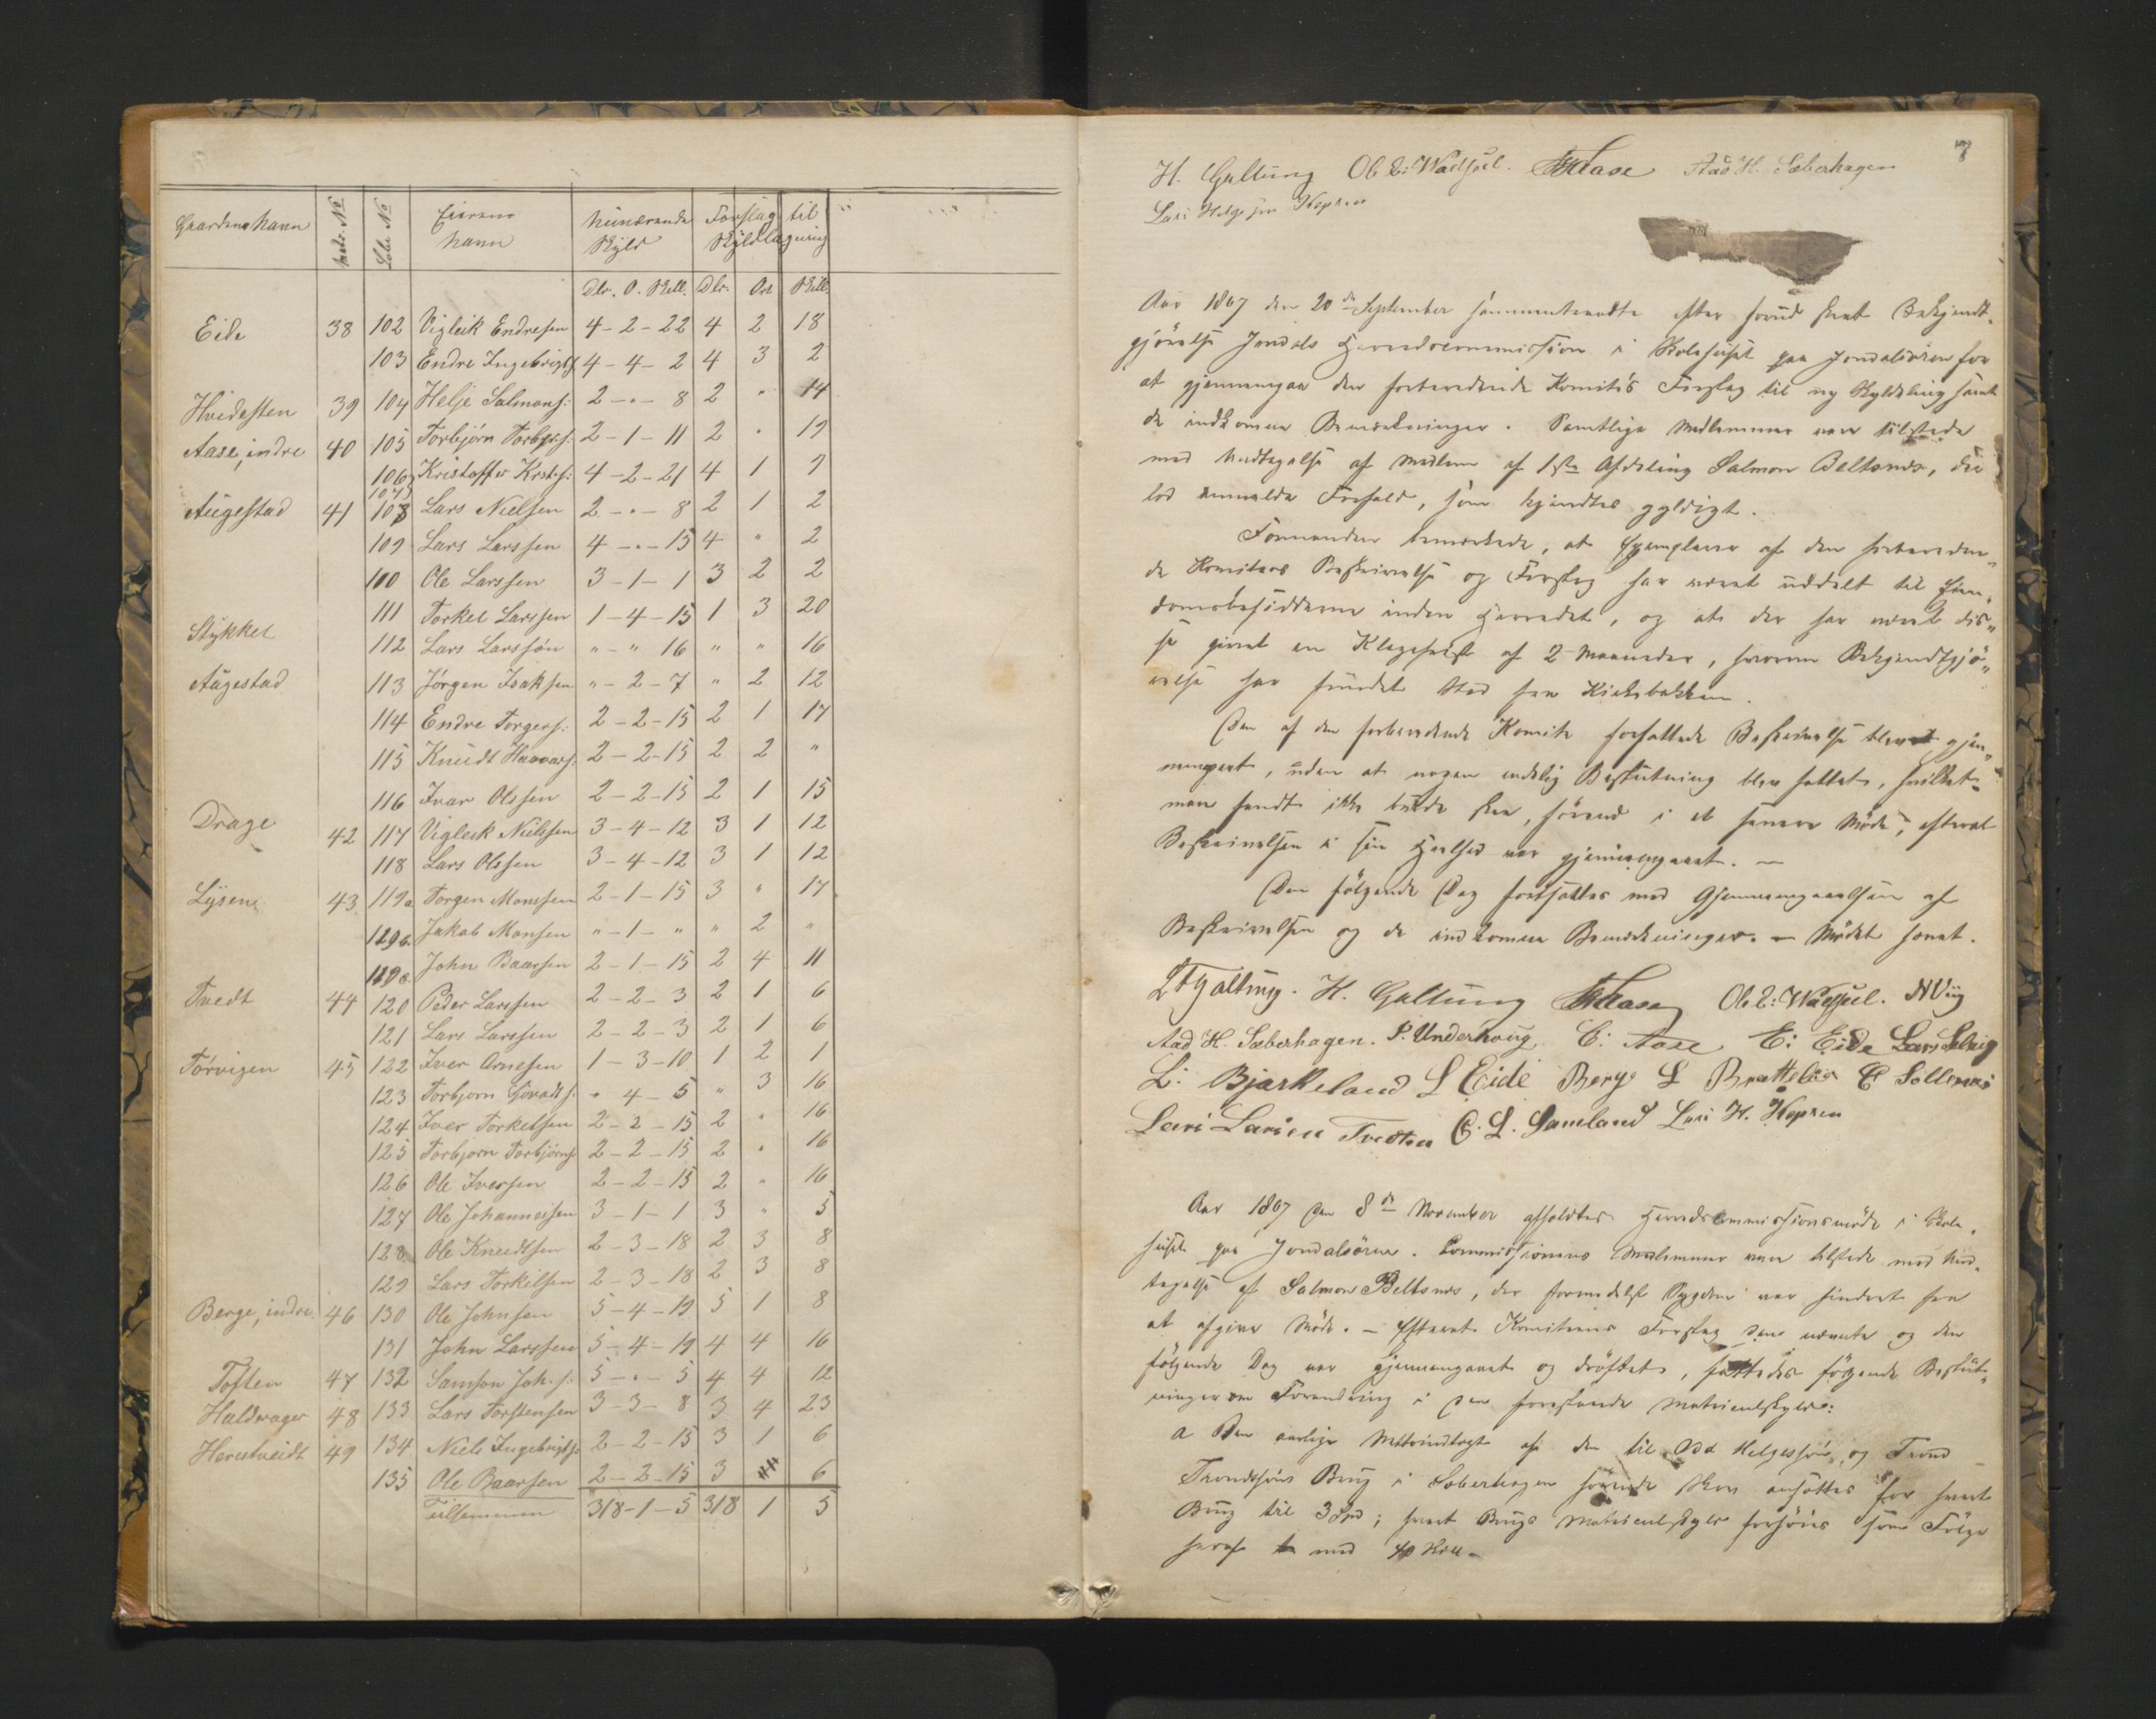 Gaardens Navn Matr. No Løbe No Eierens Navn Nuværende Skyld Forslag til Skyldlægning
Dlr. O. Skill. Dlr. Ort Skill.
Eide 38 102 Vigleik Endresen 4-2-22 4 2 18
103 Endre Ingebrigts. 4-4-2 4 3 2
Hvidesten 39 104 Helje Salmons: 2-"-8 2 " 14
Aase, indre 40 105 Torbjørn Torbjs: 2-1-11 2 " 19
106 107 Kristoffer Krist.s: 4-2-21 4 1 9
Augestad 41 108 Lars Nielsen 2-"-8 2 1 2
109 Lars Larssen 4-"-15 4 " 2
110 Ole Larssen 3-1-1 3 2 2
111 Torkel Larssen 1-4-15 1 3 20
Stykket 112 Lars Larssøn "-"16 " " 16
Augestad 113 Jørgen Isaksen "-2-7 " 2 12
114 Endre Torgers: 2-2-15 2 1 17
115 Knudt Haavars. 2-2-15 2 2 "
116 Ivar Olssen 2-2-15 2 1 15
Drage 42 117 Vigleik Nielssen 3-4-12 3 1 12
118 Lars Olssen 3-4-12 3 1 12
Lysene 43 119a Torgen Monssen 2-1-15 3 " 17
119b. Jakob Monsen "-1-" " 2 "
119c. John Baarsen 2-1-15 2 4 11
Tvedt 44 120 Peder Larssen 2-2-3 2 1 6
121 Lars Larssen 2-2-3 2 1 6
Tørvigen 45 122 Iver Arnesen 1-3-10 1 2 1
123 Torbjørn Govadts. " 4-5 " 3 16
124 Iver Torkelsen 2-2-15 2 " 16
125 Torbjørn Torbjørns. 2-2-15 2 " 16
126 Ole Iversen 2-2-15 2 " 16
127 Ole Johannessen 3-1-1 3 " 5
128 Ole Knudtsen 2-3-18 2 3 8
129 Lars Torkilsen 2-3-18 2 3 8
Berge, indre. 46 130 Ole Johnsen 5-4-19 5 1 8
131 John Larssen 5-4-19 4 4 16
Toften 47 132 Samson Joh.s: 5-"-5 4 4 12
Haldorager 48 133 Lars Torstensen 3-3-8 3 4 23
Herestveidt 49 134 Niels Ingebrigts. 2-2-15 3 1 6
135 Ole Baarsen 2-2-15 3 6
Tilsammen 318-1-5 318 1 5
7
H. Galtung Ol. L: Wadsel. Aase Aad H. Sæberhagen
Lars Helgesen Hopren
Aar 1867 den 20de September sammentraadte efter forud skeet Bekjendt-
gjørelse Jondals Herredscommission i Skolehuset paa Jondalsøren for
at gjennemgaa den forberedende Komités Forslag til ny Skyldling samt
de indkomne Bemærkninger. Samtlige Medlemmer vare tilstede
med Undtagelse af Medlem af 1ste Afdeling Salmon Beltesnes, der
lod anmelde Forfald, som kjendtes gyldigt.
Formanden bemærkede, at Exemplarer af den forbereden„
de Komitees Beskrivelse og Forslag har været uddelt til Eien„
domsbesidderne inden Herredet, og at der har været dis„
se givet en Klagefrist af 2 Maaneder, hvorom Bekjendtgjø„
relse har fundet Sted fra Kirkebakken.
Den af den forberedende Komite forfattede Beskrivelse blev gjen„
nemgaaet, uden at nogen endelig Beslutning blev fattet, hvilket
man fandt ikke burde skee, førend i et senere Møde, efterat
Beskrivelsen i sin Helhed var gjennemgaaet. —
Den følgende Dag fortsattes med Gjennemgaaelsen af
Beskrivelsen og de indkomne Bemærkninger. — Mødet hævet.
Galtung. H. Galtung Aase Ol. L: Wadsel. N Viig
Aad H. Sæberhagen. P. Underhoug. C: Aase E: Eide Lars Selvig
L: Bjørkeland L Eide Berge L Brattebø E Sollesnæs
Lars Larsen Tvedten C. L. Samland Lars H. Hopren
Aar 1867 den 8de November afholdtes Herredscommissionsmøde i Skole„
huset paa Jondalsøren. Commissionens Medlemmer vare tilstede med Und„
tagelse af Salmon Beltesnes, der formedelst Sygdom var hindret fra
at afgive Møde. — Efterat Komiteens Forslag den nævnte og den
følgende Dag var gjennemgaaet og drøftet, fattedes følgende Beslut„
ninger om Forandring i den foreslaaede Matriculskyld:
a Den aarlige Nettoindtægt af den til Odd Helgessøn og Trond
Trondssøns Brug i Sæberhagen hørende Skov ansættes for hvert
Brug til 3 Spd; hvert Brugs Matriculskyld forhøies som Følge
heraf med 40 Skill.